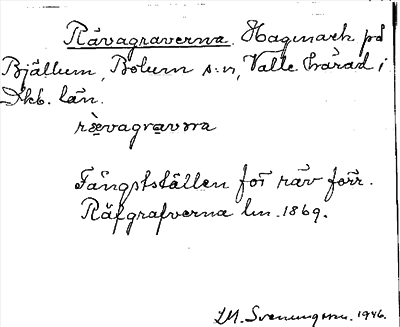 Rävagraverna. Hagmark på
Bjällum, Bolum s:n, Valle härad i
Skb. län.
rævagravɷrna
Fångstställen för räv förr.
Räfgrafverna lm. 1869.
LM. Svenungsson. 1946.